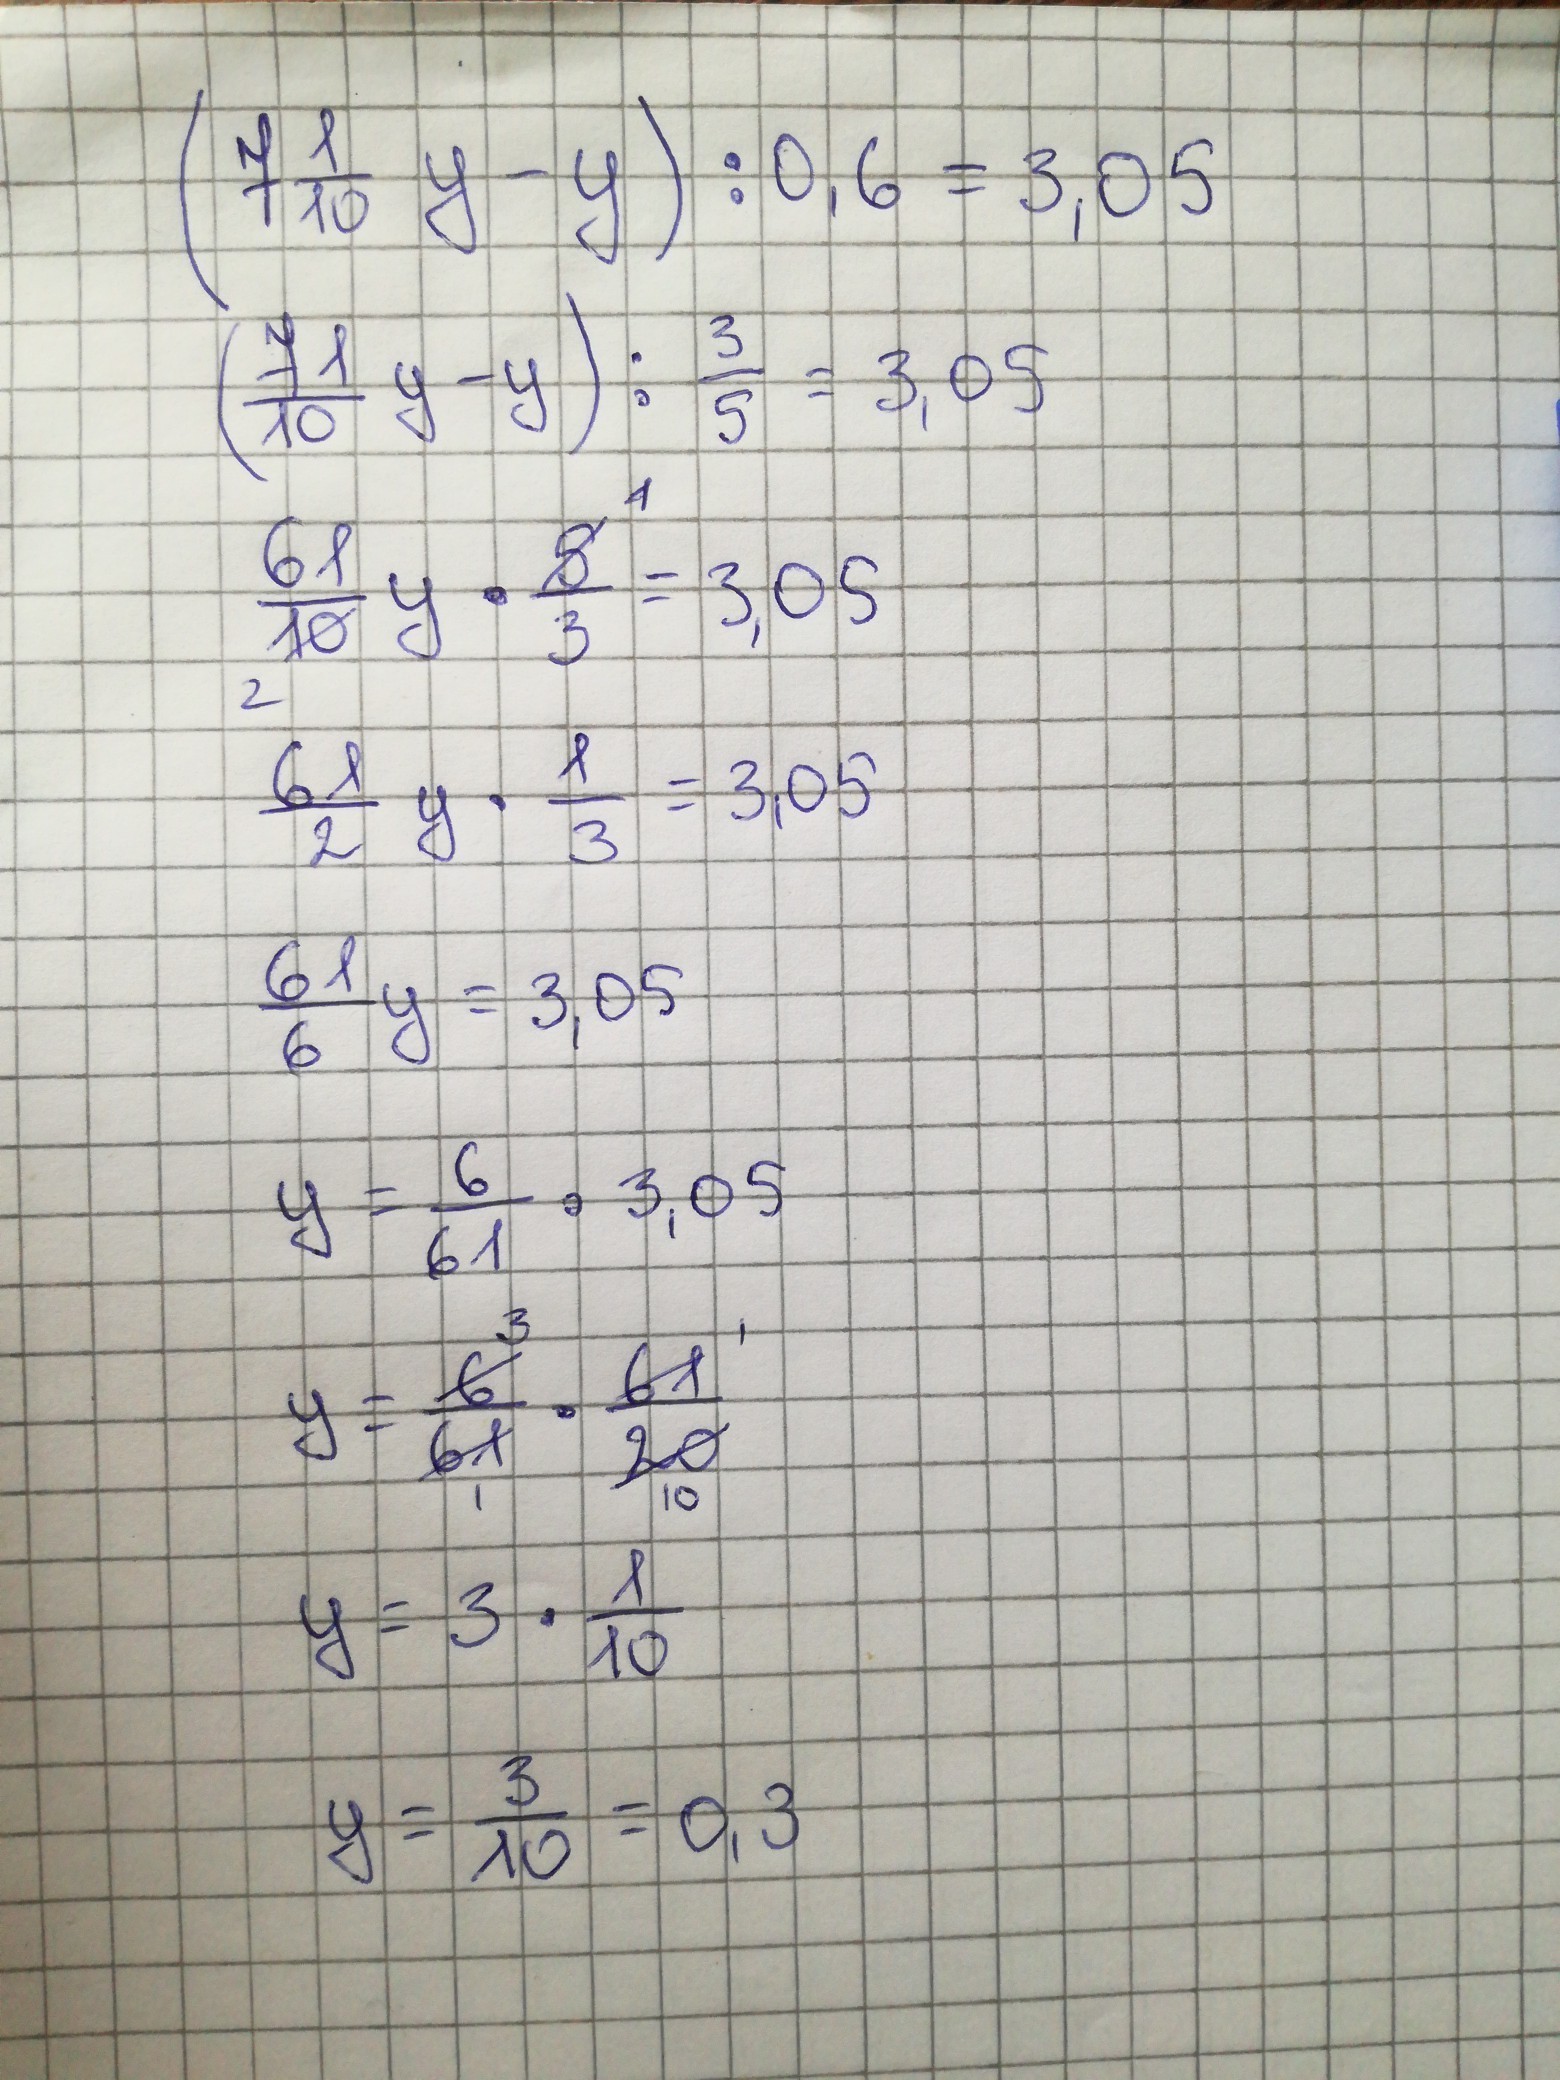 (7 1/10 y - y) : 0,6 = 3,05
(71/10 y - y) : 3/5 = 3,05
61/10 y · 5/3 = 3,05 1 2
61/2 y · 1/3 = 3,05
61/6 y = 3,05
y = 6/61 · 3,05
y = 6/61 · 61/20 3 1 1 10
y = 3 · 1/10
y = 3/10 = 0,3